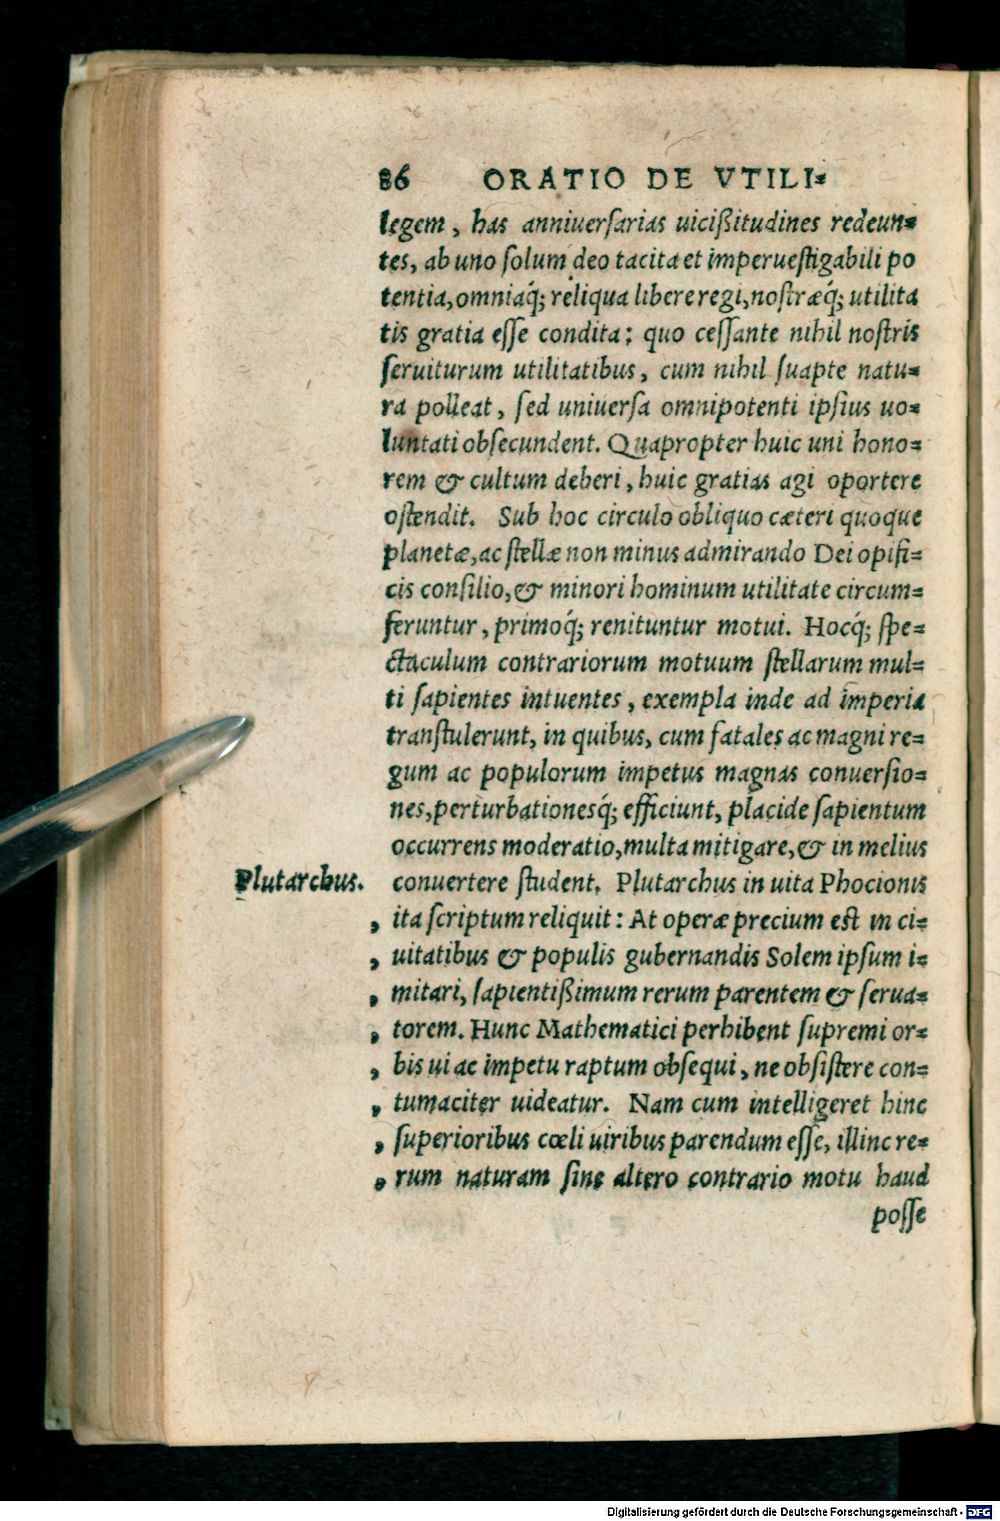 86 ORATIO DE VTILI=
legem, has anniuersarias uicißitudines redeun=
tes, ab uno solum deo tacita et imperuestigabili po
tentia, omniaq́; reliqua libere regi, nostræq́; utilita
tis gratia esse condita: quo cessante nihil nostris
seruiturum utilitatibus, cum nihil suapte natu=
ra polleat, sed uniuersa omnipotenti ipsius uo=
luntati obsecundent. Quapropter huic uni hono=
rem & cultum deberi, huic gratias agi oportere
ostendit. Sub hoc circulo obliquo cæteri quoque
planetæ, ac stellæ non minus admirando Dei opifi=
cis consilio, & minori hominum utilitate circum=
feruntur, primoq́; renituntur motui. Hocq́; spe=
ctaculum contrariorum motuum stellarum mul=
ti sapientes intuentes, exempla inde ad imperia
transtulerunt, in quibus, cum fatales ac magni re=
gum ac populorum impetus magnas conuersio=
nes, perturbationesq́; efficiunt, placide sapientum
occurrens moderatio, multa mitigare, & in melius
Plutarchus. conuertere student. Plutarchus in uita Phocionis
, ita scriptum reliquit: At operæ precium est in ci=
, uitatibus & populis gubernandis Solem ipsum i=
, mitari, sapientißimum rerum parentem & serua=
, torem. Hunc Mathematici perhibent supremi or=
, bis ui ac impetu raptum obsequi, ne obsistere con=
, tumaciter uideatur. Nam cum intelligeret hinc
, superioribus cœli uiribus parendum esse, illinc re=
, rum naturam sine altero contrario motu haud
posse
Digitalisierung gefördert durch die Deutsche Forschungsgemeinschaft - DFG